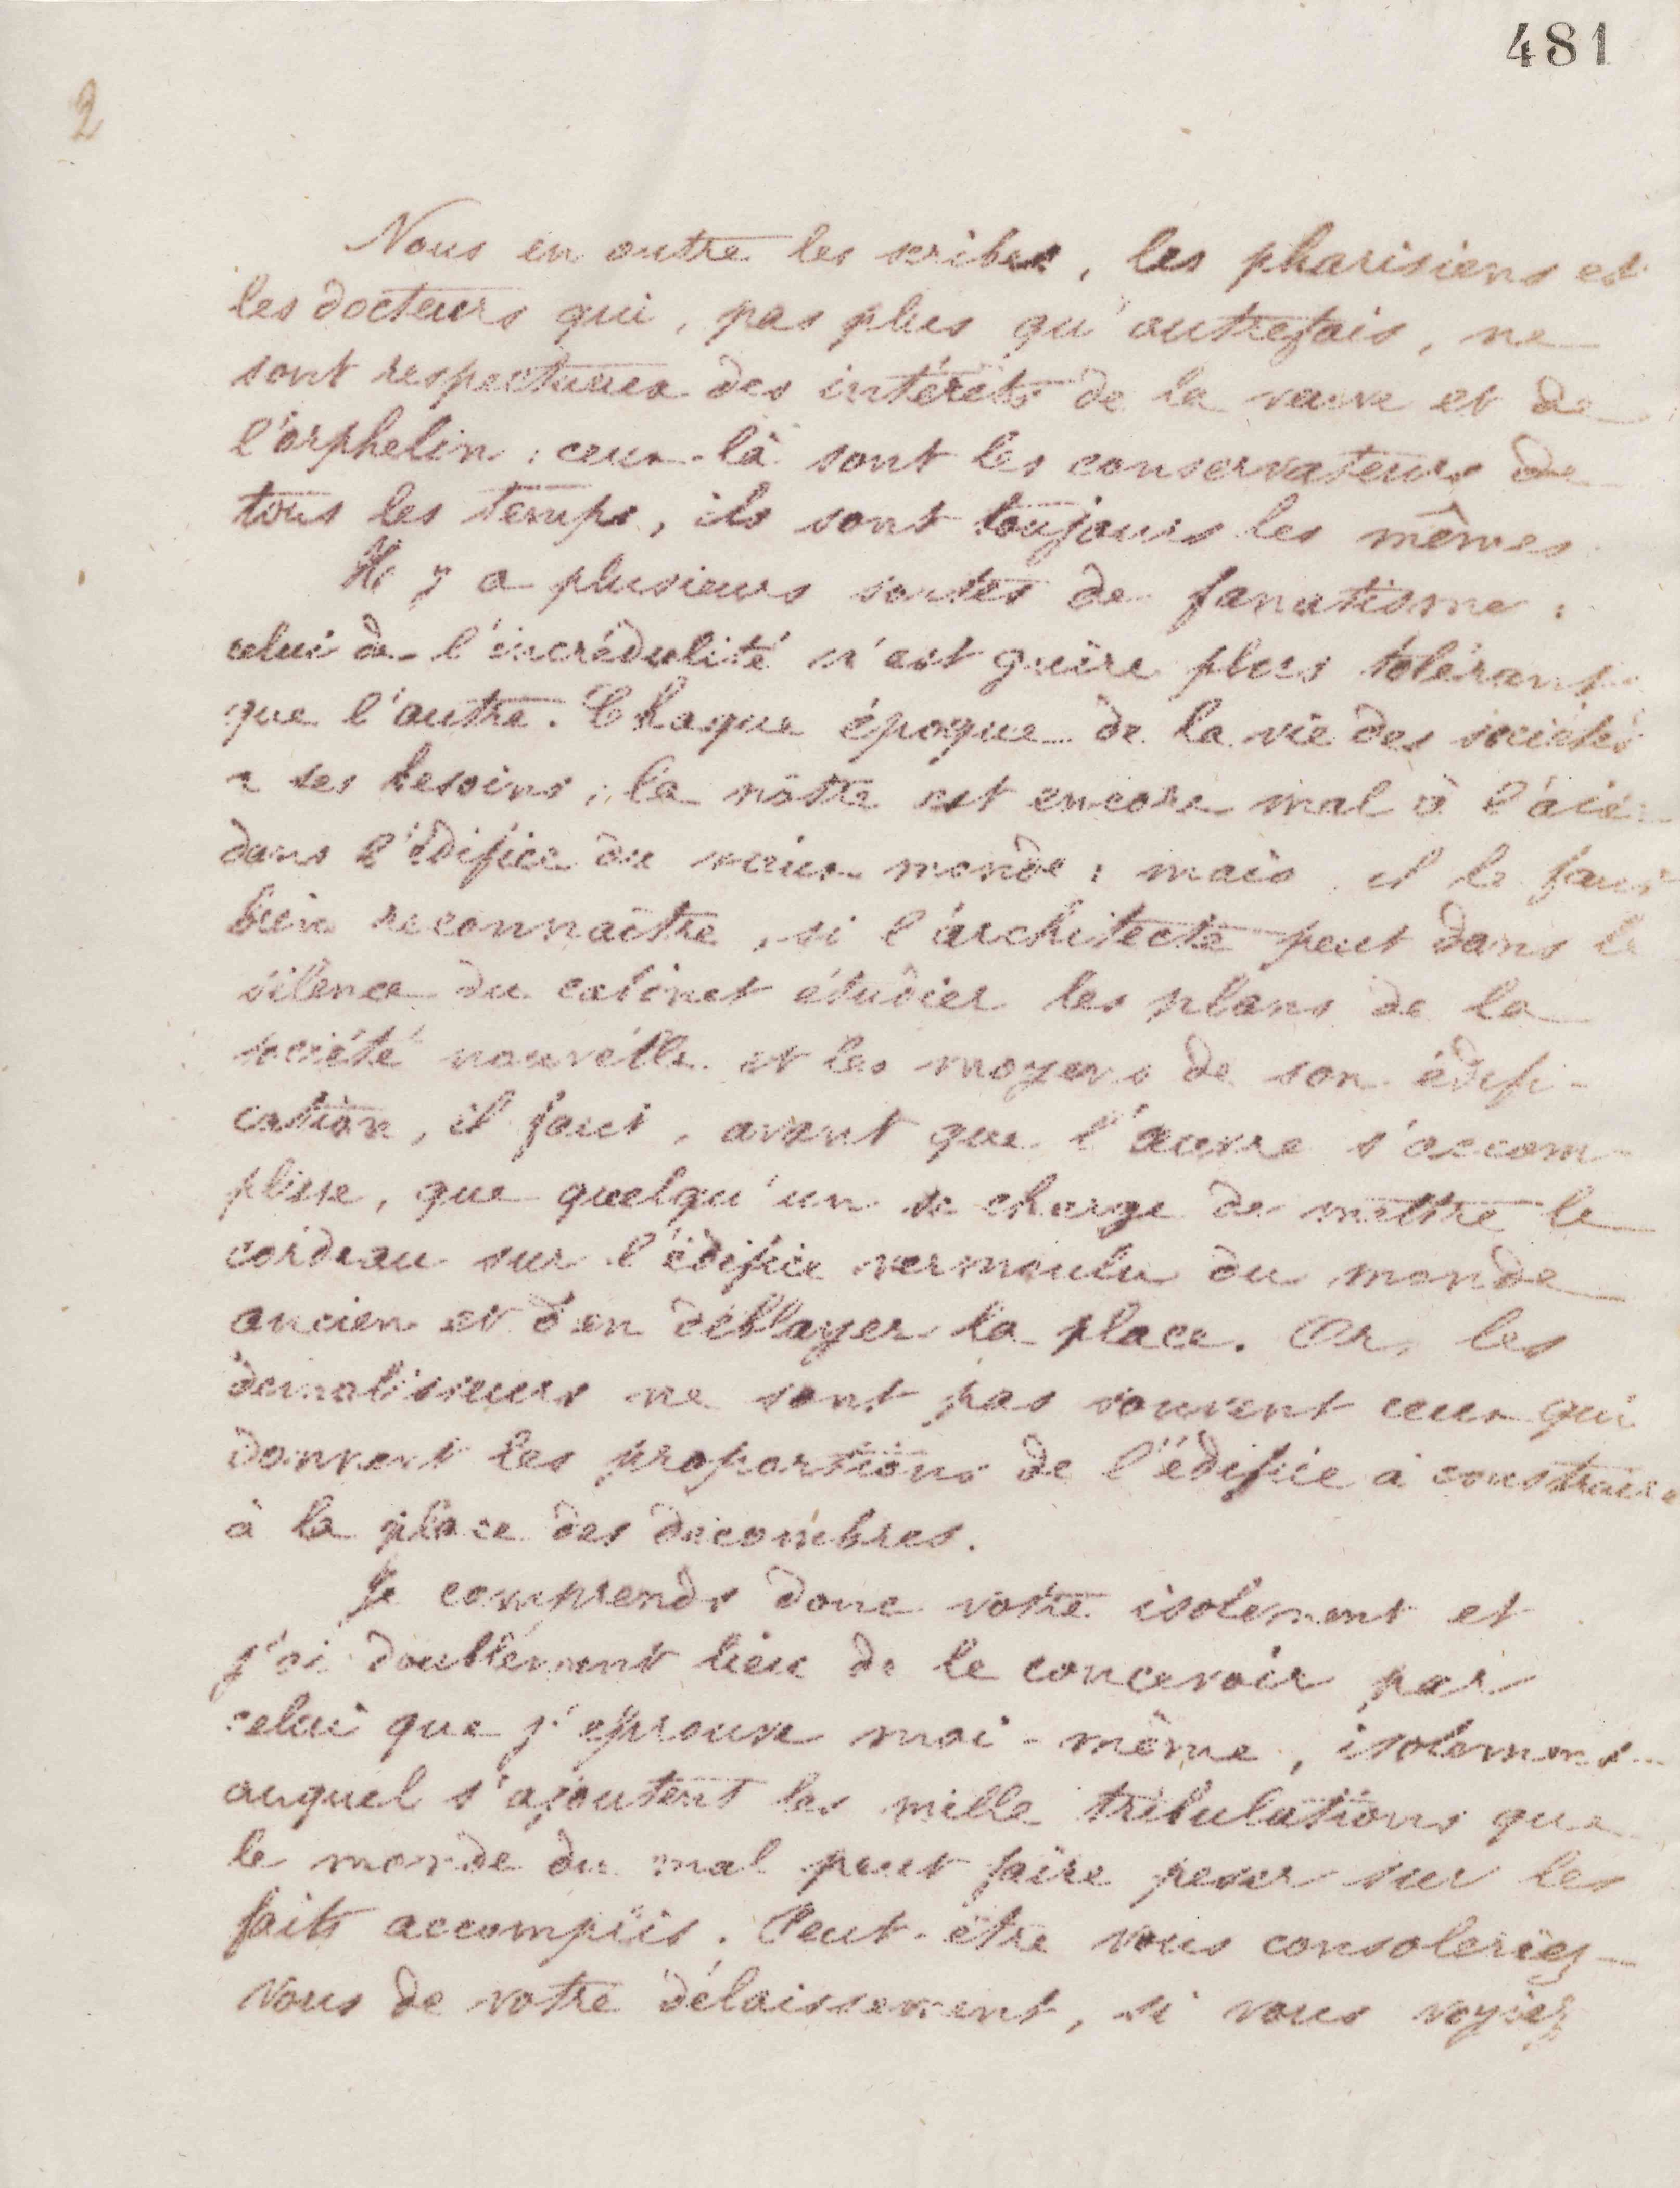 481
2
Nous en outre les scribes, les pharisiens et
les docteurs qui, pas plus qu'autrefois, ne
sont respectueux des intérêts de la veuve et de
l'orphelin : ceux-là sont les conservateurs de
tous les temps, ils sont toujours les mêmes
Il y a plusieurs sortes de fanatisme :
celui de l'incrédulité n'est guère plus tolérant
que l'autre. Chaque époque de la vie des sociétés
a ses besoins ; la nôtre est encore mal à l'aise
dans l'édifice du vieux monde : mais, il le faut
bien reconnaître, si l'architecte peut dans le
silence du cabinet étudier les plans de la
société nouvelle et les moyens de son édifi-
cation, il faut, avant que l'œuvre s'accom-
plisse, que quelqu'un se charge de mettre le
cordeau sur l'édifice vermoulu du monde
ancien et d'en déblayer la place. Or, les
démolisseurs ne sont pas souvent ceux qui
donnent les proportions de l'édifice à construire
à la place des décombres.
Je comprends donc votre isolement et
j'ai doublement lieu de le concevoir par
celui que j'éprouve moi-même, isolement
auquel s'ajoutent les mille tribulations que
le monde du mal peut faire peser sur les
faits accomplis. Peut-être vous consoleriez-
vous de votre délaissement, si vous voyiez